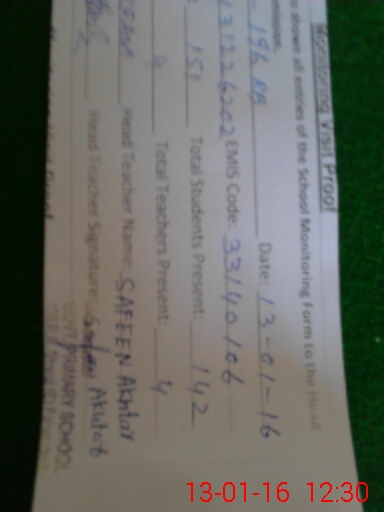 Monitoring Visit Proof
shown all entries of the School Monitoring Form to the Head
196 RB Date: 13-01-16
EMIS Code: 33140106
151 Total Students Present: 142
4 Total Teachers Present: 4
Head Teacher Name: SAFEEN Akhtar
Head Teacher Signature: Safeen Akhtar
GOVT PRIMARY SCHOOL
13-01-16 12:30